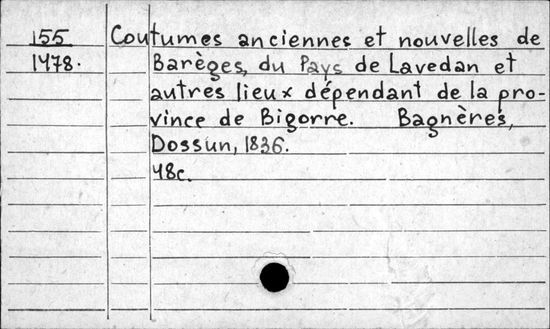 155 Coutumes anciennes et nouvelles de
1478. Barèges, du Pays de Lavedan et
autres lieux dépendant de la pro-
vince de Bigorre. Bagnères,
Dossun, 1836.
48c.